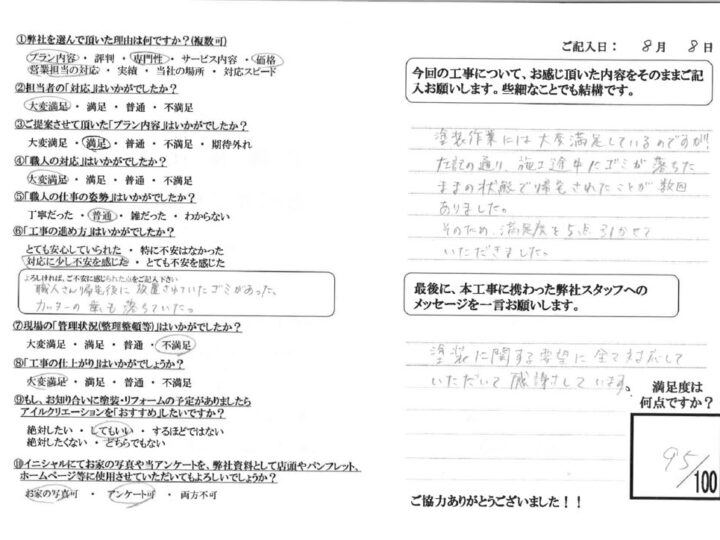 ①弊社を選んで頂いた理由は何ですか?(複数可)
プラン内容 ・ 評判 ・ 専門性 ・ サービス内容 ・ 価格
営業担当の対応 ・ 実績 ・ 当社の場所 ・ 対応スピード
②担当者の「対応」はいかがでしたか?
大変満足 ・ 満足 ・ 普通 ・ 不満足
③ご提案させて頂いた「プラン内容」はいかがでしたか?
大変満足 ・ 満足 ・ 普通 ・ 不満足 ・ 期待外れ
④「職人の対応」はいかがでしたか?
大変満足 ・ 満足 ・ 普通 ・ 不満足
⑤「職人の仕事の姿勢」はいかがでしたか?
丁寧だった ・ 普通 ・ 雑だった ・ わからない
⑥「工事の進め方」はいかがでしたか?
とても安心していられた ・ 特に不安はなかった
対応に少し不安を感じた ・ とても不安を感じた
よろしければ、ご不安に感じられた点をご記入下さい
職人さん帰宅後に放置されていたゴミがあった、
カッターの も落ちていた。
⑦現場の「管理状況(整理整頓等)」はいかがでしたか?
大変満足 ・ 満足 ・ 普通 ・ 不満足
⑧「工事の仕上がり」はいかがでしょうか?
大変満足 ・ 満足 ・ 普通 ・ 不満足
⑨もし、お知り合いに塗装・リフォームの予定がありましたら
アイルクリエーションを「おすすめ」したいですか?
絶対したい ・ してもいい ・ するほどではない
絶対したくない ・ どちらでもない
⑩イニシャルにてお家の写真や当アンケートを、弊社資料として店頭やパンフレット、
ホームページ等に使用させていただいてもよろしいでしょうか?
お家の写真可 ・ アンケート可 ・ 両方不可
ご記入日: 8月 8日
今回の工事について、お感じ頂いた内容をそのままご記
入お願いします。些細なことでも結構です。
塗装作業には大変満足しているのですが、
左記の通り、施工途中にゴミが落ちた
ままの状態で帰宅されたことが数回
ありました。
そのため、満足度を5点引かせて
いただきました。
最後に、本工事に携わった弊社スタッフへの
メッセージを一言お願いします。
塗装に関する要望に全て対応して
いただいて感謝しています。
満足度は
何点ですか?
95/100
ご協力ありがとうございました!!